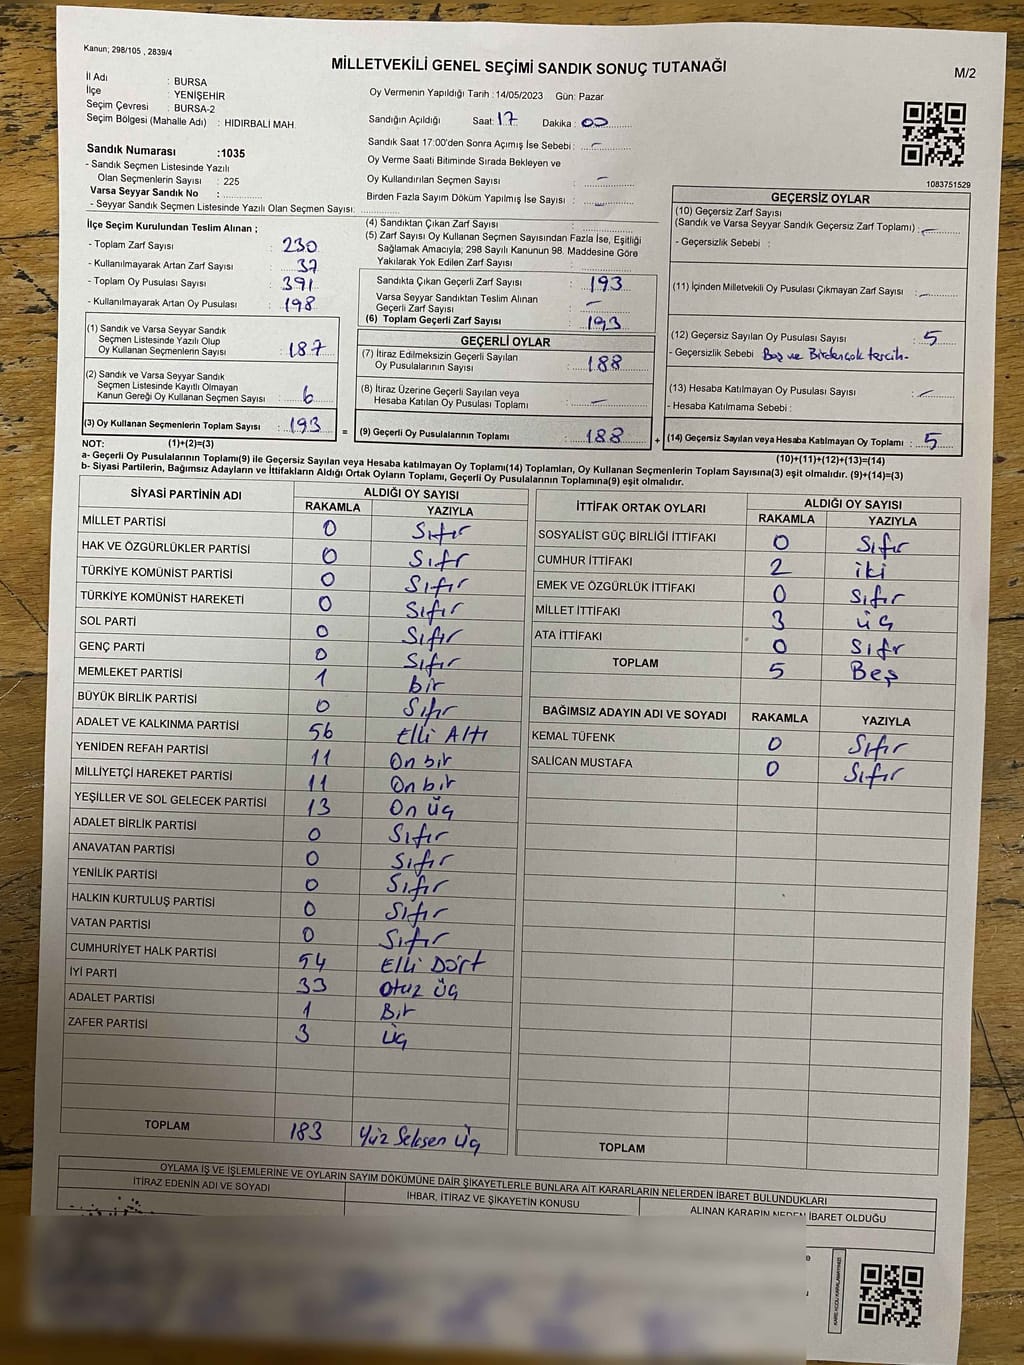 Kanun; 298/105 , 2839/4
MİLLETVEKİLİ GENEL SEÇİMİ SANDIK SONUÇ TUTANAĞI
M/2
İl Adı : BURSA
İlçe : YENİŞEHİR
Seçim Çevresi : BURSA-2
Seçim Bölgesi (Mahalle Adı) : HIDIRBALİ MAH.
Sandık Numarası :1035
- Sandık Seçmen Listesinde Yazılı
Olan Seçmenlerin Sayısı : 225
Varsa Seyyar Sandık No :
- Seyyar Sandık Seçmen Listesinde Yazılı Olan Seçmen Sayısı:
Oy Vermenin Yapıldığı Tarih :14/05/2023 Gün: Pazar
Sandığın Açıldığı Saat: 17 Dakika : 00
Sandık Saat 17:00'den Sonra Açımış İse Sebebi : -
Oy Verme Saati Bitiminde Sırada Bekleyen ve
Oy Kullandırılan Seçmen Sayısı : -
Birden Fazla Sayım Döküm Yapılmış İse Sayısı : -
1083751529
İlçe Seçim Kurulundan Teslim Alınan ;
- Toplam Zarf Sayısı : 230
- Kullanılmayarak Artan Zarf Sayısı : 37
- Toplam Oy Pusulası Sayısı : 391
- Kullanılmayarak Artan Oy Pusulası : 198
(1) Sandık ve Varsa Seyyar Sandık
Seçmen Listesinde Yazılı Olup
Oy Kullanan Seçmenlerin Sayısı : 187
(2) Sandık ve Varsa Seyyar Sandık
Seçmen Listesinde Kayıtlı Olmayan
Kanun Gereği Oy Kullanan Seçmen Sayısı : 6
(3) Oy Kullanan Seçmenlerin Toplam Sayısı : 193
(4) Sandıktan Çıkan Zarf Sayısı :
(5) Zarf Sayısı Oy Kullanan Seçmen Sayısından Fazla İse, Eşitliği
Sağlamak Amacıyla; 298 Sayılı Kanunun 98. Maddesine Göre
Yakılarak Yok Edilen Zarf Sayısı :
Sandıkta Çıkan Geçerli Zarf Sayısı : 193
Varsa Seyyar Sandıktan Teslim Alınan
Geçerli Zarf Sayısı : -
(6) Toplam Geçerli Zarf Sayısı : 193
GEÇERLİ OYLAR
(7) İtiraz Edilmeksizin Geçerli Sayılan
Oy Pusulalarının Sayısı : 188
(8) İtiraz Üzerine Geçerli Sayılan veya
Hesaba Katılan Oy Pusulası Toplamı : -
= (9) Geçerli Oy Pusulalarının Toplamı : 188 +
GEÇERSİZ OYLAR
(10) Geçersiz Zarf Sayısı
(Sandık ve Varsa Seyyar Sandık Geçersiz Zarf Toplamı) : -
- Geçersizlik Sebebi :
(11) İçinden Milletvekili Oy Pusulası Çıkmayan Zarf Sayısı : -
(12) Geçersiz Sayılan Oy Pusulası Sayısı : 5
- Geçersizlik Sebebi : Boş ve Birdençok tercih-
(13) Hesaba Katılmayan Oy Pusulası Sayısı : -
- Hesaba Katılmama Sebebi :
(14) Geçersiz Sayılan veya Hesaba Katılmayan Oy Toplamı : 5
NOT: (1)+(2)=(3) (10)+(11)+(12)+(13)=(14)
a- Geçerli Oy Pusulalarının Toplamı(9) ile Geçersiz Sayılan veya Hesaba katılmayan Oy Toplamı(14) Toplamları, Oy Kullanan Seçmenlerin Toplam Sayısına(3) eşit olmalıdır. (9)+(14)=(3)
b- Siyasi Partilerin, Bağımsız Adayların ve İttifakların Aldığı Ortak Oyların Toplamı, Geçerli Oy Pusulalarının Toplamına(9) eşit olmalıdır.
SİYASİ PARTİNİN ADI ALDIĞI OY SAYISI
RAKAMLA YAZIYLA
MİLLET PARTİSİ 0 Sıfır
HAK VE ÖZGÜRLÜKLER PARTİSİ 0 Sıfr
TÜRKİYE KOMÜNİST PARTİSİ 0 Sıfır
TÜRKİYE KOMÜNİST HAREKETİ 0 Sıfır
SOL PARTİ 0 Sıfır
GENÇ PARTİ 0 Sıfır
MEMLEKET PARTİSİ 1 bir
BÜYÜK BİRLİK PARTİSİ 0 Sıfır
ADALET VE KALKINMA PARTİSİ 56 Elli Altı
YENİDEN REFAH PARTİSİ 11 On bir
MİLLİYETÇİ HAREKET PARTİSİ 11 On bir
YEŞİLLER VE SOL GELECEK PARTİSİ 13 On üç
ADALET BİRLİK PARTİSİ 0 Sıfır
ANAVATAN PARTİSİ 0 Sıfır
YENİLİK PARTİSİ 0 Sıfır
HALKIN KURTULUŞ PARTİSİ 0 Sıfır
VATAN PARTİSİ 0 Sıfır
CUMHURİYET HALK PARTİSİ 54 Elli Dört
İYİ PARTİ 33 Otuz üç
ADALET PARTİSİ 1 Bir
ZAFER PARTİSİ 3 üç
TOPLAM 183 Yüz Seksen üç
İTTİFAK ORTAK OYLARI ALDIĞI OY SAYISI
RAKAMLA YAZIYLA
SOSYALİST GÜÇ BİRLİĞİ İTTİFAKI 0 Sıfır
CUMHUR İTTİFAKI 2 iki
EMEK VE ÖZGÜRLÜK İTTİFAKI 0 Sıfır
MİLLET İTTİFAKI 3 üç
ATA İTTİFAKI 0 Sıfr
TOPLAM 5 Beş
BAĞIMSIZ ADAYIN ADI VE SOYADI RAKAMLA YAZIYLA
KEMAL TÜFENK 0 Sıfır
SALİCAN MUSTAFA 0 Sıfır
TOPLAM
OYLAMA İŞ VE İŞLEMLERİNE VE OYLARIN SAYIM DÖKÜMÜNE DAİR ŞİKAYETLERLE BUNLARA AİT KARARLARIN NELERDEN İBARET BULUNDUKLARI
İTİRAZ EDENİN ADI VE SOYADI İHBAR, İTİRAZ VE ŞİKAYETİN KONUSU ALINAN KARARIN NEDEN İBARET OLDUĞU